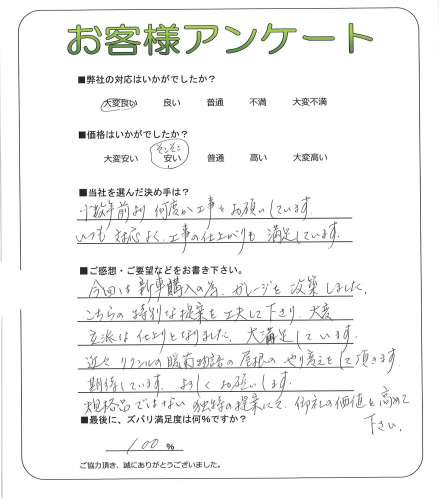 お客様アンケート
■弊社の対応はいかがでしたか?
大変良い 良い 普通 不満 大変不満
■価格はいかがでしたか?
そこそこ
大変安い 安い 普通 高い 大変高い
■当社を選んだ決め手は?
十数年前より何度か工事をお願いしています。
いつも対応よく、工事の仕上がりも満足しています。
■ご感想・ご要望などをお書き下さい。
今回は新車購入の為、ガレージを改築しました。
こちらの特別な提案を工夫して下さり、大変
立派な仕上りとなりました。大満足しています。
近々リクシルの暖蘭物語の屋根のやり変えをして頂きます。
期待しています。よろしくお願いします
規格品ではない独特の提案にて、御社の価値を高めて
下さい。
■最後に、ズバリ満足度は何%ですか?
100 %
ご協力頂き、誠にありがとうございました。